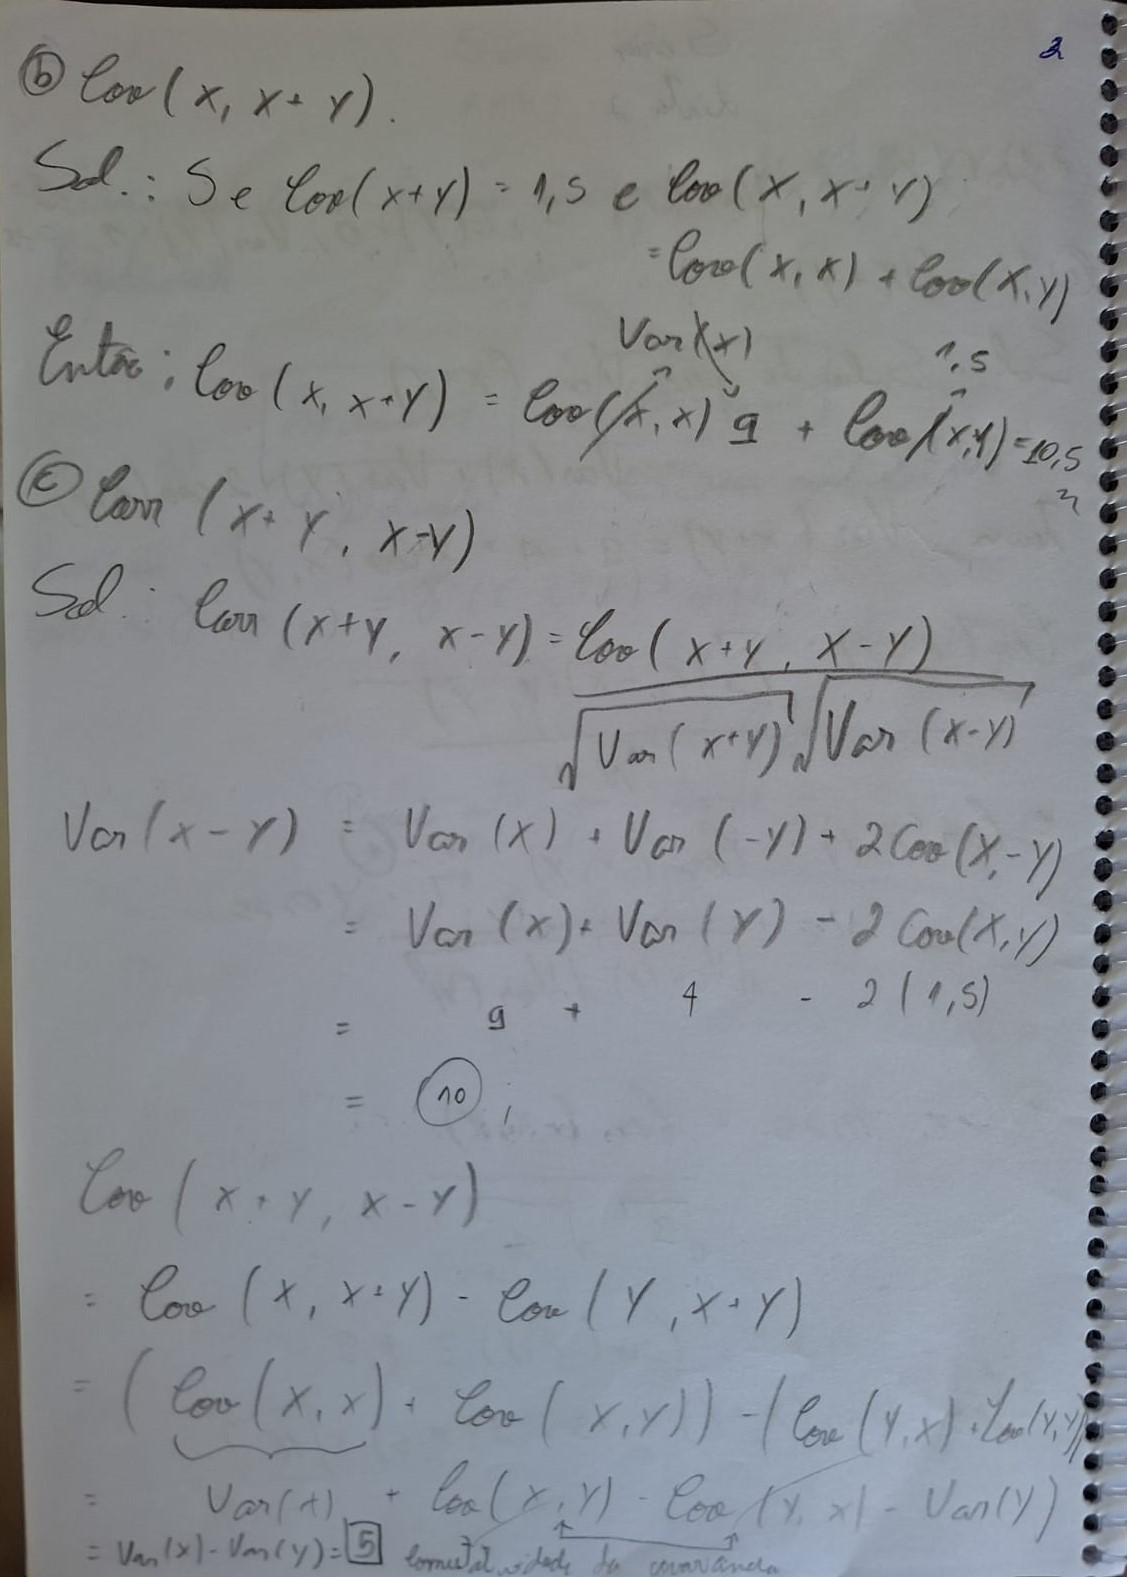 2
ⓑ Cov(X, X+Y).
Sol.: Se Cov(X+Y) = 1,5 e Cov(X, X+Y)
= Cov(X, X) + Cov(X, Y)
Var(X)
1,5
Então; Cov(X, X+Y) = Cov(X, X) 9 + Cov(X,Y) = 10,5
ⓒ Corr (X+Y, X-Y)
Sol: Corr (X+Y, X-Y) = Cov(X+Y, X-Y)
√Var(X+Y) √Var(X-Y)
Var(X-Y) = Var(X) + Var(-Y) + 2Cov(X,-Y)
= Var(X) + Var(Y) - 2Cov(X,Y)
= 9 + 4 - 2(1,5)
= 10;
Cov(X+Y, X-Y)
= Cov(X, X+Y) - Cov(Y, X+Y)
= (Cov(X,X) + Cov(X,Y)) - (Cov(Y,X) + Cov(Y,Y))
= Var(X) + Cov(X,Y) - Cov(Y,X) - Var(Y)
= Var(X) - Var(Y) = 5 comutatividade da covariância